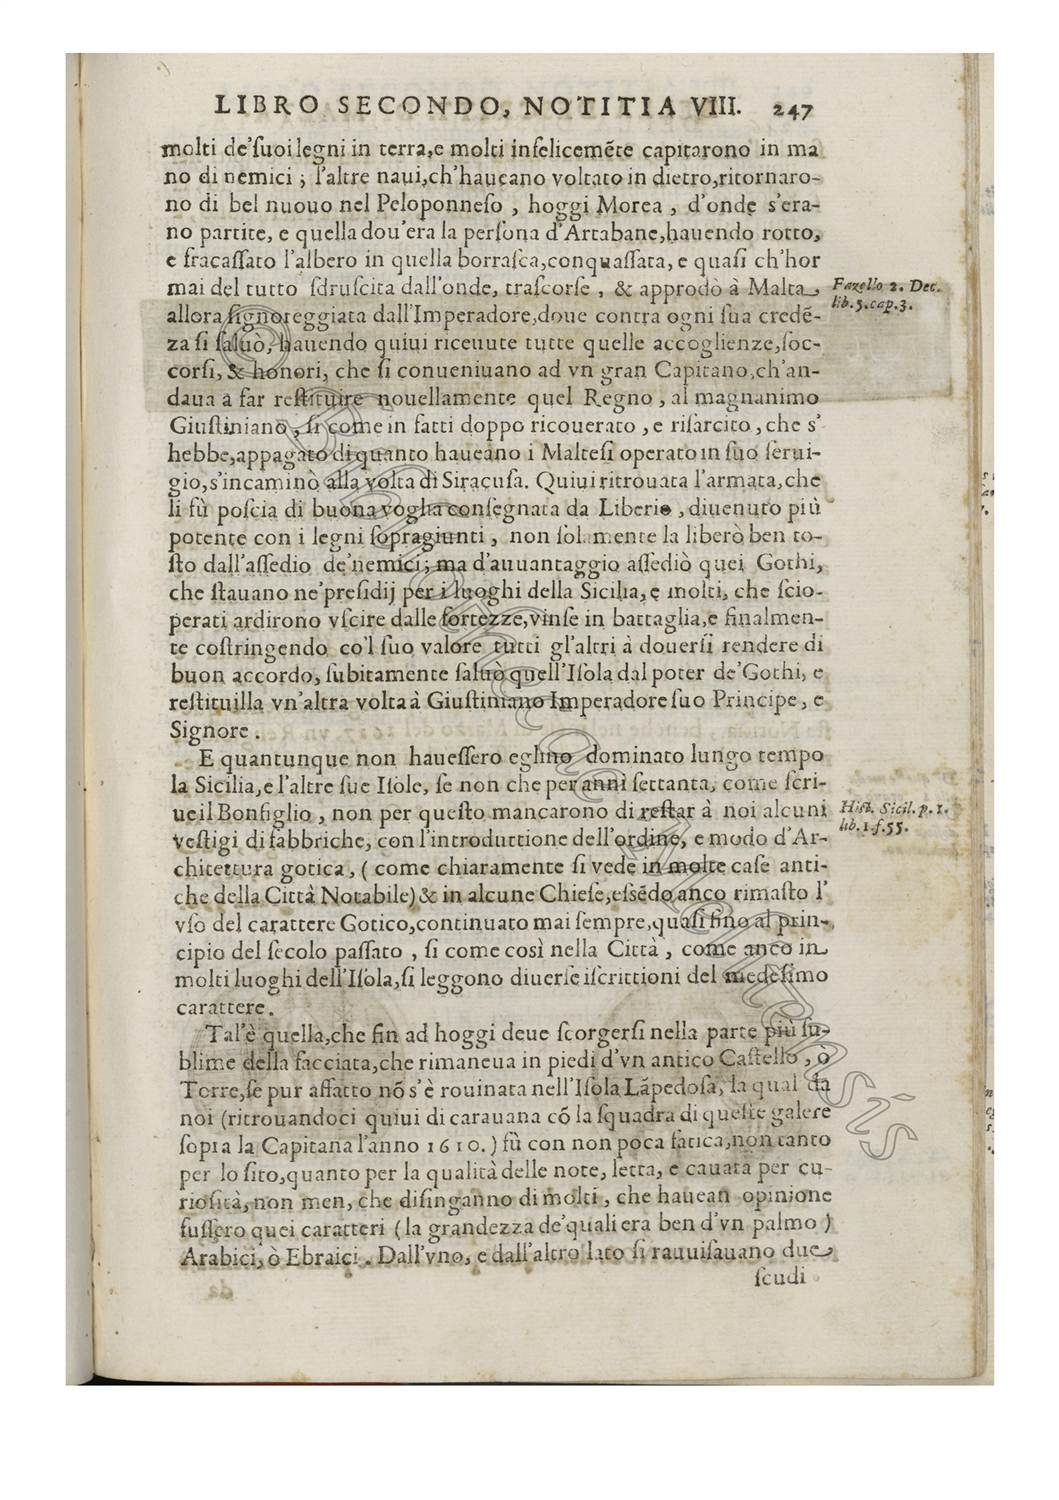 LIBRO SECONDO, NOTITIA VIII. 247
molti de'ſuoi legni in terra,e molti infelicemẽte capitarono in ma
no di nemici ; l'altre naui,ch'haueano voltato in dietro,ritornaro-
no di bel nuouo nel Peloponneſo , hoggi Morea , d'onde s'era-
no partite, e quella dou'era la perſona d'Artabane,hauendo rotto,
e fracaſſato l'albero in quella borraſca,conquaſſata, e quaſi ch'hor
mai del tutto ſdruſcita dall'onde, traſcorſe , & approdò à Malta,
Fazello 2. Dec.
lib.5.cap.3.
allora ſignoreggiata dall'Imperadore,doue contra ogni ſua credẽ-
za ſi ſaluò, hauendo quiui riceuute tutte quelle accoglienze,ſoc-
corſi, & honori, che ſi conueniuano ad vn gran Capitano,ch'an-
daua a far reſtituire nouellamente quel Regno , al magnanimo
Giuſtiniano , ſi come in fatti doppo ricouerato , e riſarcito , che s'
hebbe,appagato di quanto haueano i Malteſi operato in ſuo ſerui-
gio,s'incaminò alla volta di Siracuſa. Quiui ritrouata l'armata,che
li fù poſcia di buona voglia conſegnata da Liberio , diuenuto più
potente con i legni ſopragiunti , non ſolamente la liberò ben to-
ſto dall'aſſedio de'nemici; ma d'auuantaggio aſſediò quei Gothi,
che ſtauano ne'preſidij per i luoghi della Sicilia, e molti, che ſcio-
perati ardirono vſcire dalle fortezze,vinſe in battaglia,e finalmen-
te coſtringendo co'l ſuo valore tutti gl'altri à douerſi rendere di
buon accordo, ſubitamente ſaluò quell'Iſola dal poter de'Gothi, e
reſtituilla vn'altra volta à Giuſtiniano Imperadore ſuo Principe, e
Signore .
E quantunque non haueſſero eglino dominato lungo tempo
la Sicilia,e l'altre ſue Iſole, ſe non che per anni ſettanta, come ſcri-
ue il Bonfiglio , non per queſto mancarono di reſtar à noi alcuni
Hiſt. Sicil. p. 1.
lib. 1.f.55.
veſtigi di fabbriche, con l'introduttione dell'ordine, e modo d'Ar-
chitettura gotica , ( come chiaramente ſi vede in molte caſe anti-
che della Città Notabile) & in alcune Chieſe,eſsẽdo anco rimaſto l'
vſo del carattere Gotico,continuato mai ſempre,quaſi fino al prin-
cipio del ſecolo paſſato , ſi come così nella Città , come anco in
molti luoghi dell'Iſola,ſi leggono diuerſe iſcrittioni del medeſimo
carattere.
Tal'è quella,che fin ad hoggi deue ſcorgerſi nella parte più ſu-
blime della facciata,che rimaneua in piedi d'vn antico Caſtello , ò
Torre,ſe pur affatto nõ s'è rouinata nell'Iſola Lãpedoſa, la qual da
noi (ritrouandoci quiui di carauana cõ la ſquadra di queſte galere
ſopra la Capitana l'anno 1610.) fù con non poca fatica,non tanto
per lo ſito,quanto per la qualità delle note, letta, e cauata per cu-
rioſità, non men, che diſinganno di molti , che hauean opinione
fuſſero quei caratteri ( la grandezza de'quali era ben d'vn palmo )
Arabici, ò Ebraici . Dall'vno, e dall'altro lato ſi rauuiſauano due
ſcudi
© Bibliotheca Alphonsis